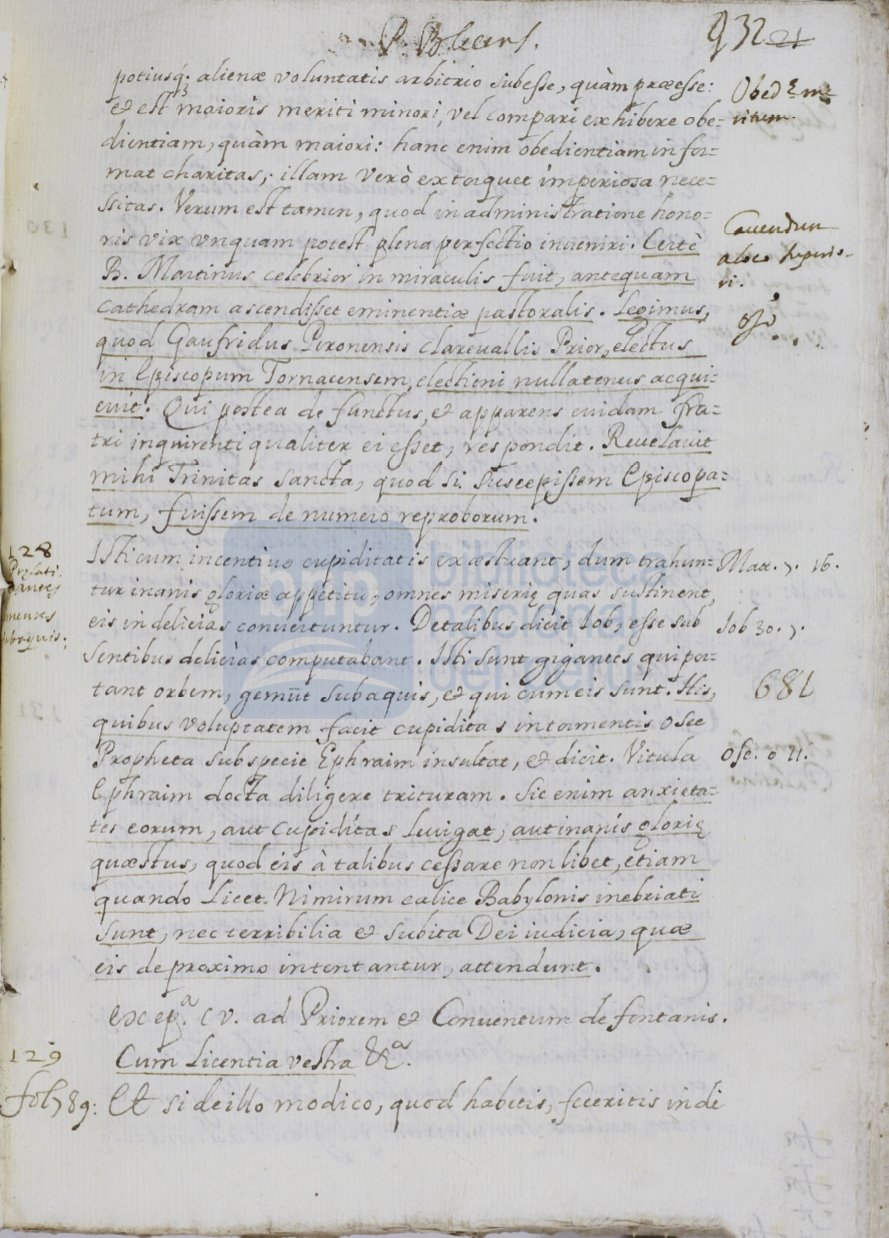 P. Blesens.
932 21
potiusq; alienæ voluntatis arbitrio subesse, quàm præesse:
Obed.ę me-
& est maioris meriti minori, vel compari exhibere obe-
ritum.
dientiam, quàm maiori: hanc enim obedientiam infor-
mat charitas; illam verò extorquet imperiosa nece-
ssitas. Verum est tamen, quod in administratione hono-
Cauendum
ris vix vnquam potest plena perfectio inueniri. Certè
a loco superio-
B. Martinus celebrior in miraculis fuit, antequam
ri.
Cathedram ascendisset eminentiæ pastoralis. Legimus,
quod Gaufridus Peronensis Clareuallis Prior, electus
in Episcopum Tornacensem, electioni nullatenus acqui-
euit. Qui postea defunctus, & apparens cuidam fra-
tri inquirenti qualiter ei esset, respondit. Reuelauit
mihi Trinitas sancta, quod si suscepissem Episcopa-
tum, fuissem de numero reproborum.
128
Isti cum incentiuo cupiditatis exæstuant, dum trahun-
Mar. 7. 16.
tur inanis gloriæ appetitu, omnes miserię quas sustinent,
eis in delicias conuertuntur. De talibus dicit Iob, esse sub
Iob 30. 7.
sentibus delicias computabant. Isti sunt gigantes qui por-
tant orbem, gemūt sub aquis, & qui cum eis sunt. His,
681
quibus voluptatem facit cupiditas in tormentis Osee
Propheta sub specie Ephraim insultat, & dicit. Vitula
Ose. 10 11.
Ephraim docta diligere trituram. Sic enim anxieta-
tes eorum, aut cupiditas leuigat, aut inanis glorię
quæstus, quod eis à talibus cessare non libet, etiam
quando licet. Nimirum calice Babylonis inebriati
sunt, nec terribilia & subita Dei iudicia, quæ
eis de proximo intentantur, attendunt.
Ex ep.a CV. ad Priorem & Conuentum de fontanis.
129
Cum Licentia vestra &a.
fol 789:
Et si de illo modico, quod habetis, feceritis inde
bnp biblioteca
nacional
del perú